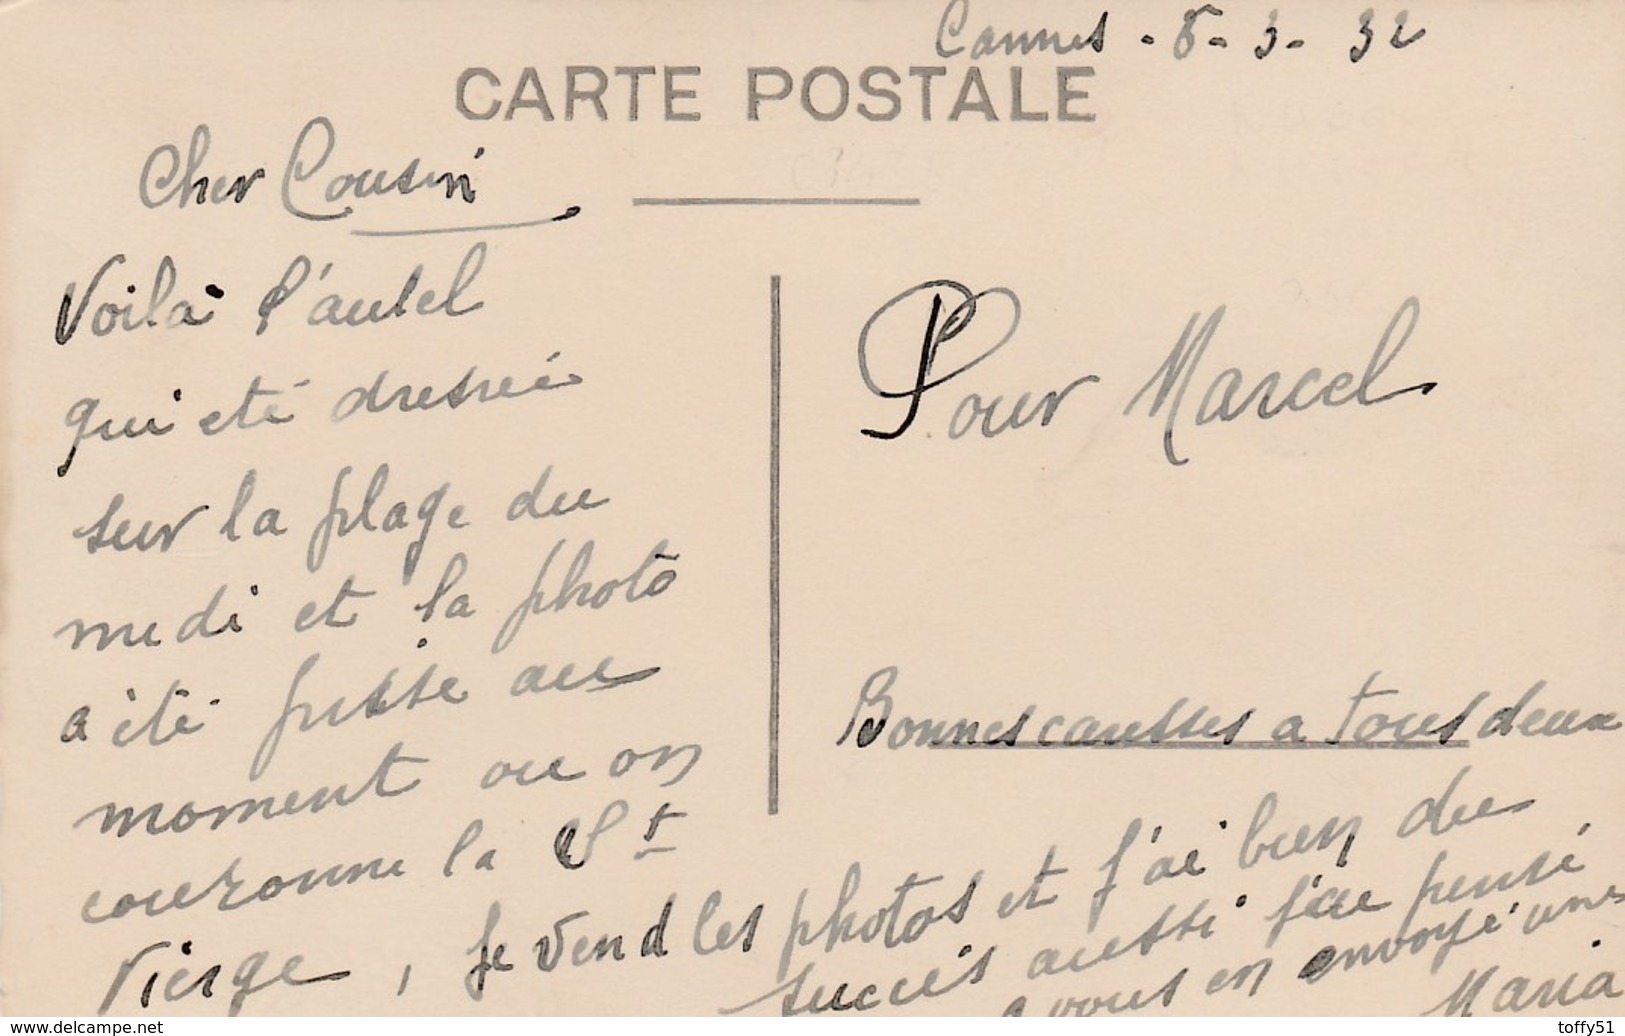 Cannes - 8 - 3 - 32
CARTE POSTALE
Cher Cousin
Voilà l'autel
qui eté dressée
sur la plage du
midi et la photo
a été prisse au
moment ou on
couronne la St
Vierge, Je vend les photos et j'ai bien du
succès aussi j'ai pensé
a vous en envoyé une
Maria
Pour Marcel
Bonnes caresses a tous deux
delcampe.net
toffy51